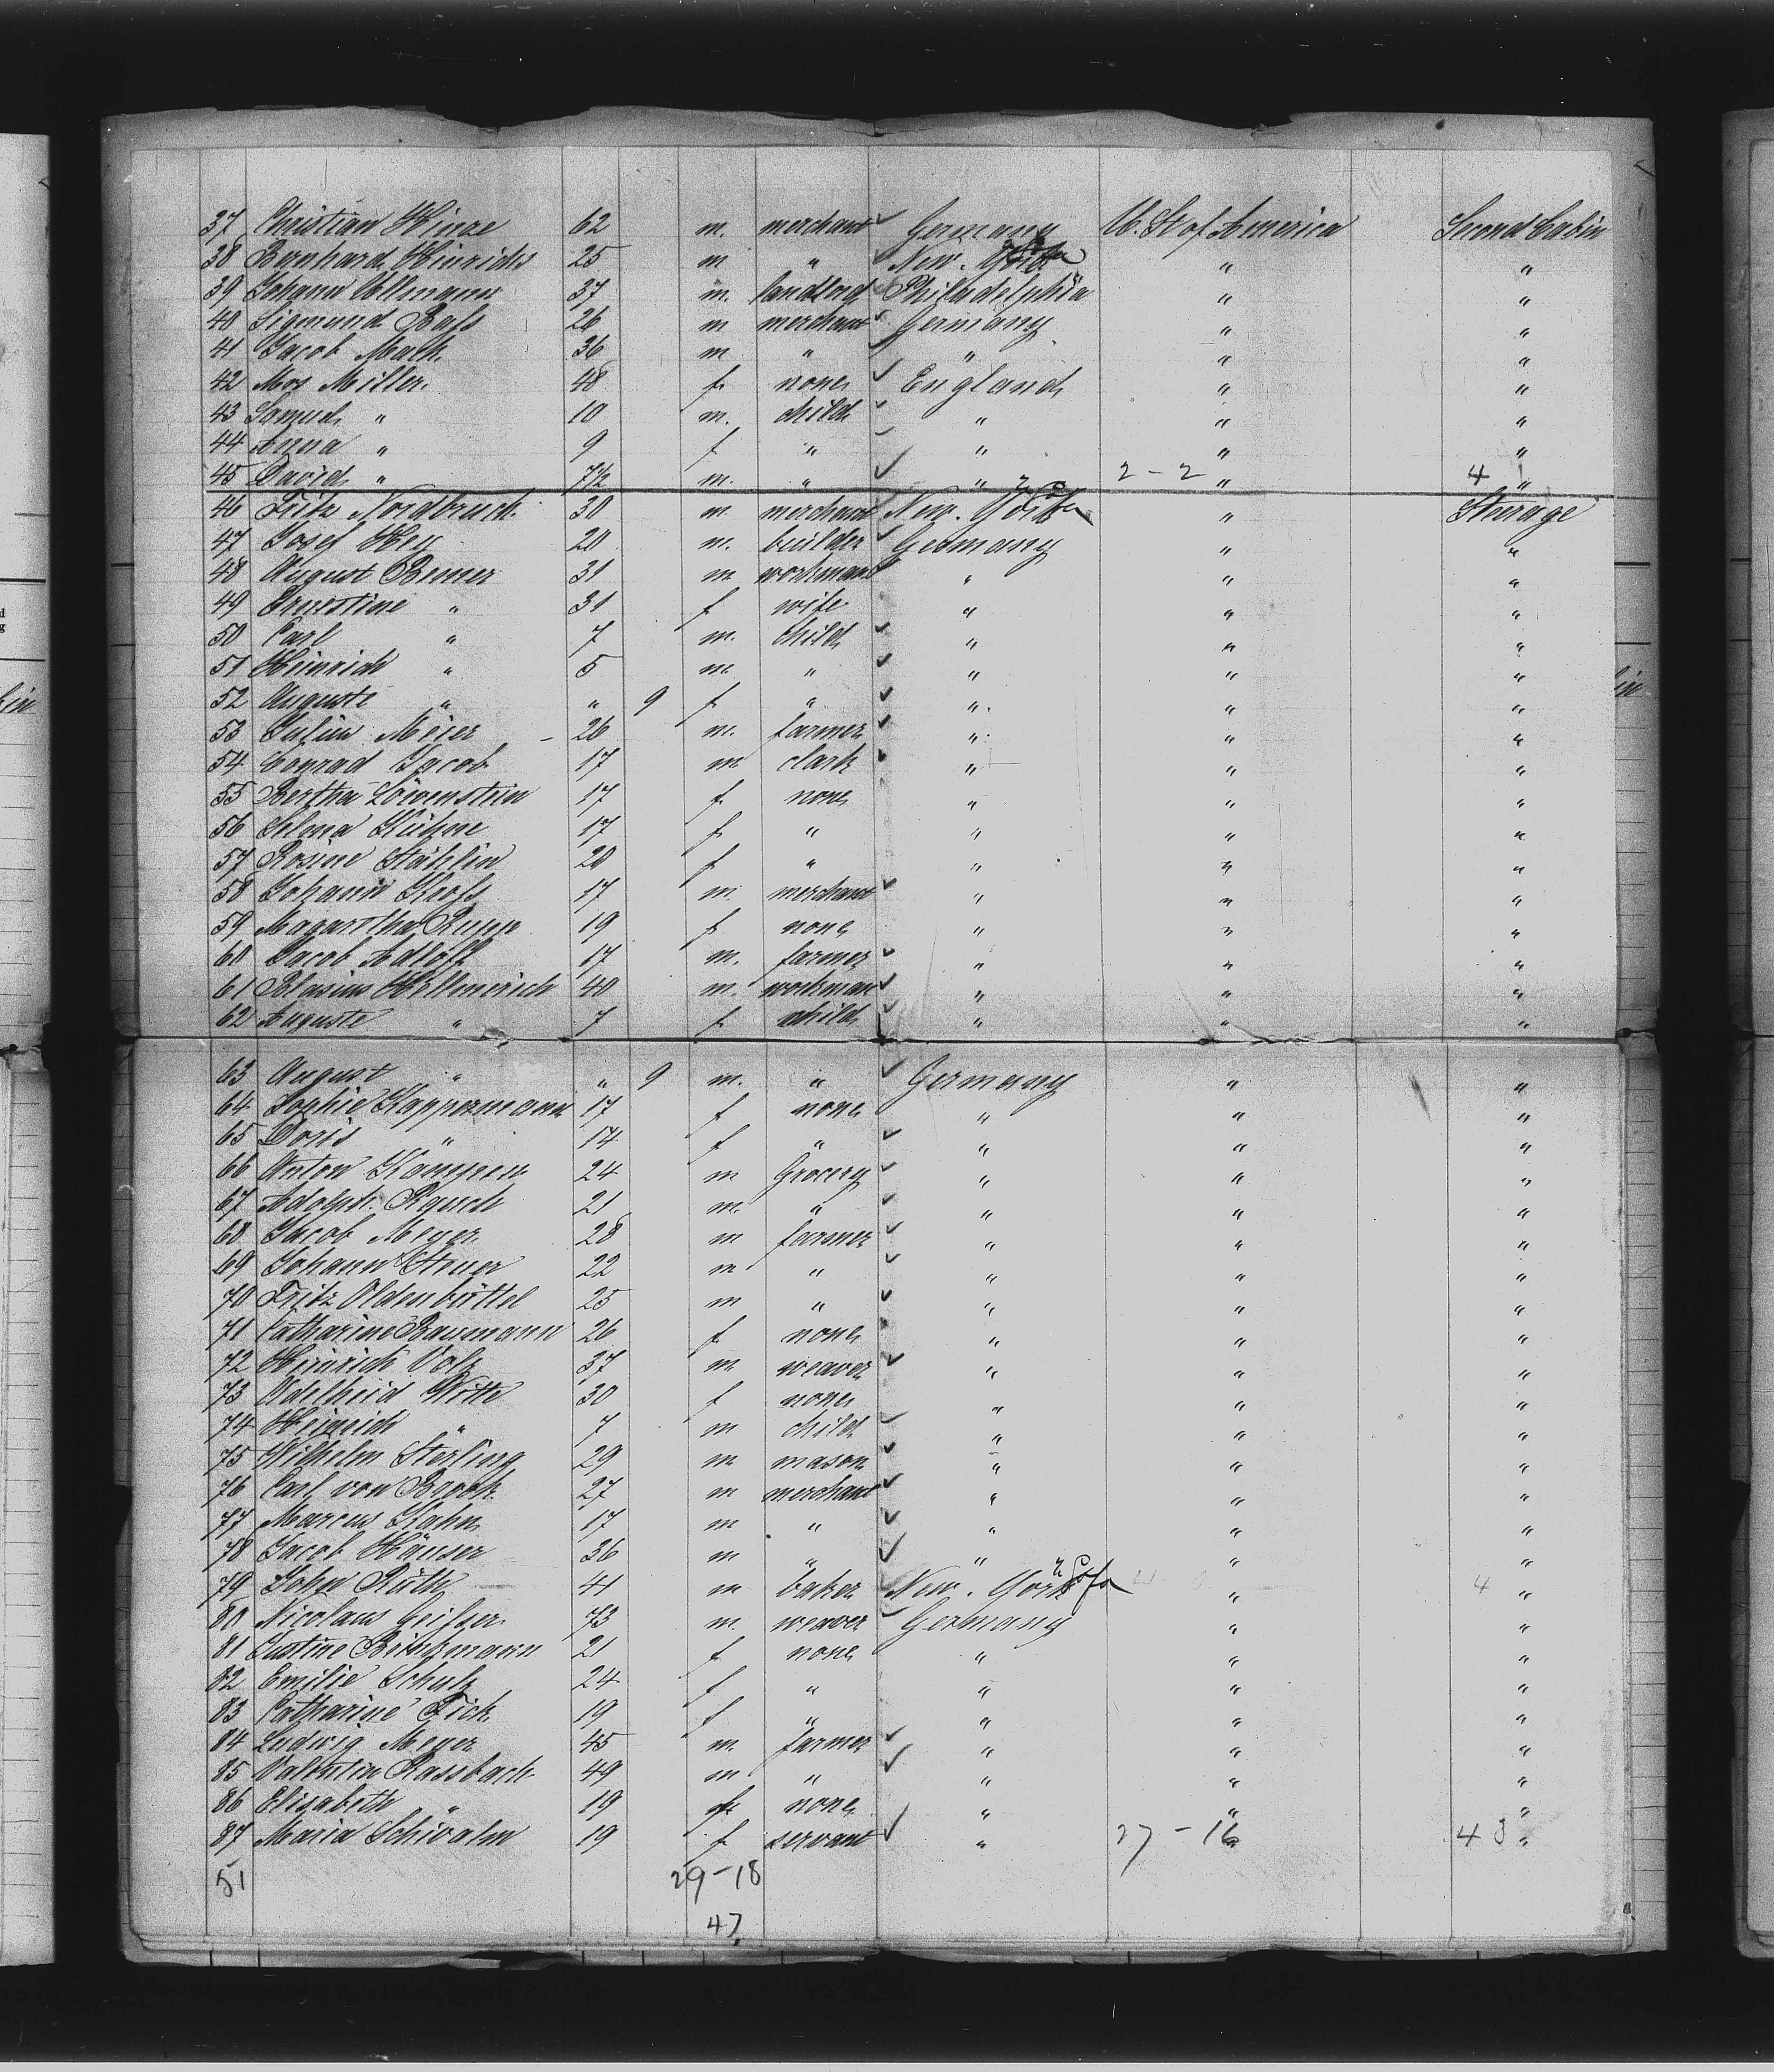 37 Christian Hinze 62 m. merchant Germany U. St of America Second Cabin
38 Bernhard Hinrichs 25 m " New-York " "
39 Johann Ollmann 37 m. landlord Philadelphia " "
40 Sigmund Bass 26 m merchant Germany " "
41 Jacob Mack 36 m " " " "
42 Mos Miller 48 f. none England " "
43 Samuel " 10 m. child " " "
44 Anna " 9 f " " " "
45 David " 7½ m. " " 2-2 " 4 "
46 Fritz Nordbruch 30 m. merchant New-York " Sterage
47 Josef Hey 20 m. builder Germany " "
48 August Bemer 31 m workman " " "
49 Ernestine " 31 f wife " " "
50 Carl " 7 m. child " " "
51 Heinrich " 5 m. " " " "
52 Auguste " " 9 f " " " "
53 Julius Meier 26 m. farmer " " "
54 Conrad Jacob 17 m clark " " "
55 Bertha Löwenstein 17 f. none " " "
56 Selma Kühne 17 f. " " " "
57 Rosine Stählin 20 f " " " "
58 Johann Kross 17 m. merchant " " "
59 Magaretha Rupp 19 f none " " "
60 Jacob Adolff 17 m. farmer " " "
61 Blasius Hellmerich 40 m. workman " " "
62 Auguste " 7 f. child " " "
63 August " " 9 m. " Germany " "
64 Sophie Kappermann 17 f none " " "
65 Doris " 14 f " " " "
66 Anton 24 m Grocery " " "
67 Adolph Rauch 21 m. " " " "
68 Jacob Meyer 28 m farmer " " "
69 Johann Steuer 22 m " " " "
70 Fritz Oldenbüttel 25 m " " " "
71 Catharine Baumann 26 f none " " "
72 Heinrich Volz 37 m weaver " " "
73 Adelheid Witte 30 f none " " "
74 Heinrich " 7 m child " " "
75 Wilhelm Sterling 29 m mason " " "
76 Carl von Brook 27 m merchant " " "
77 Marcus Kahn 17 m " " " "
78 Jacob Häuser 36 m " " " "
79 John Rüth 41 m baker New-York " 4 "
80 Nicolaus Geisser 73 m. weaver Germany " "
81 Justine Brinkmann 21 f. none " " "
82 Emilie Schulz 24 f " " " "
83 Catharine Fick 19 f " " " "
84 Ludwig Meyer 45 m. farmer " " "
85 Valentin Rassbach 49 m " " " "
86 Elisabeth " 19 f none " " "
87 Maria Schwalm 19 f servant " 27-16 " 43 "
51 29-18
47